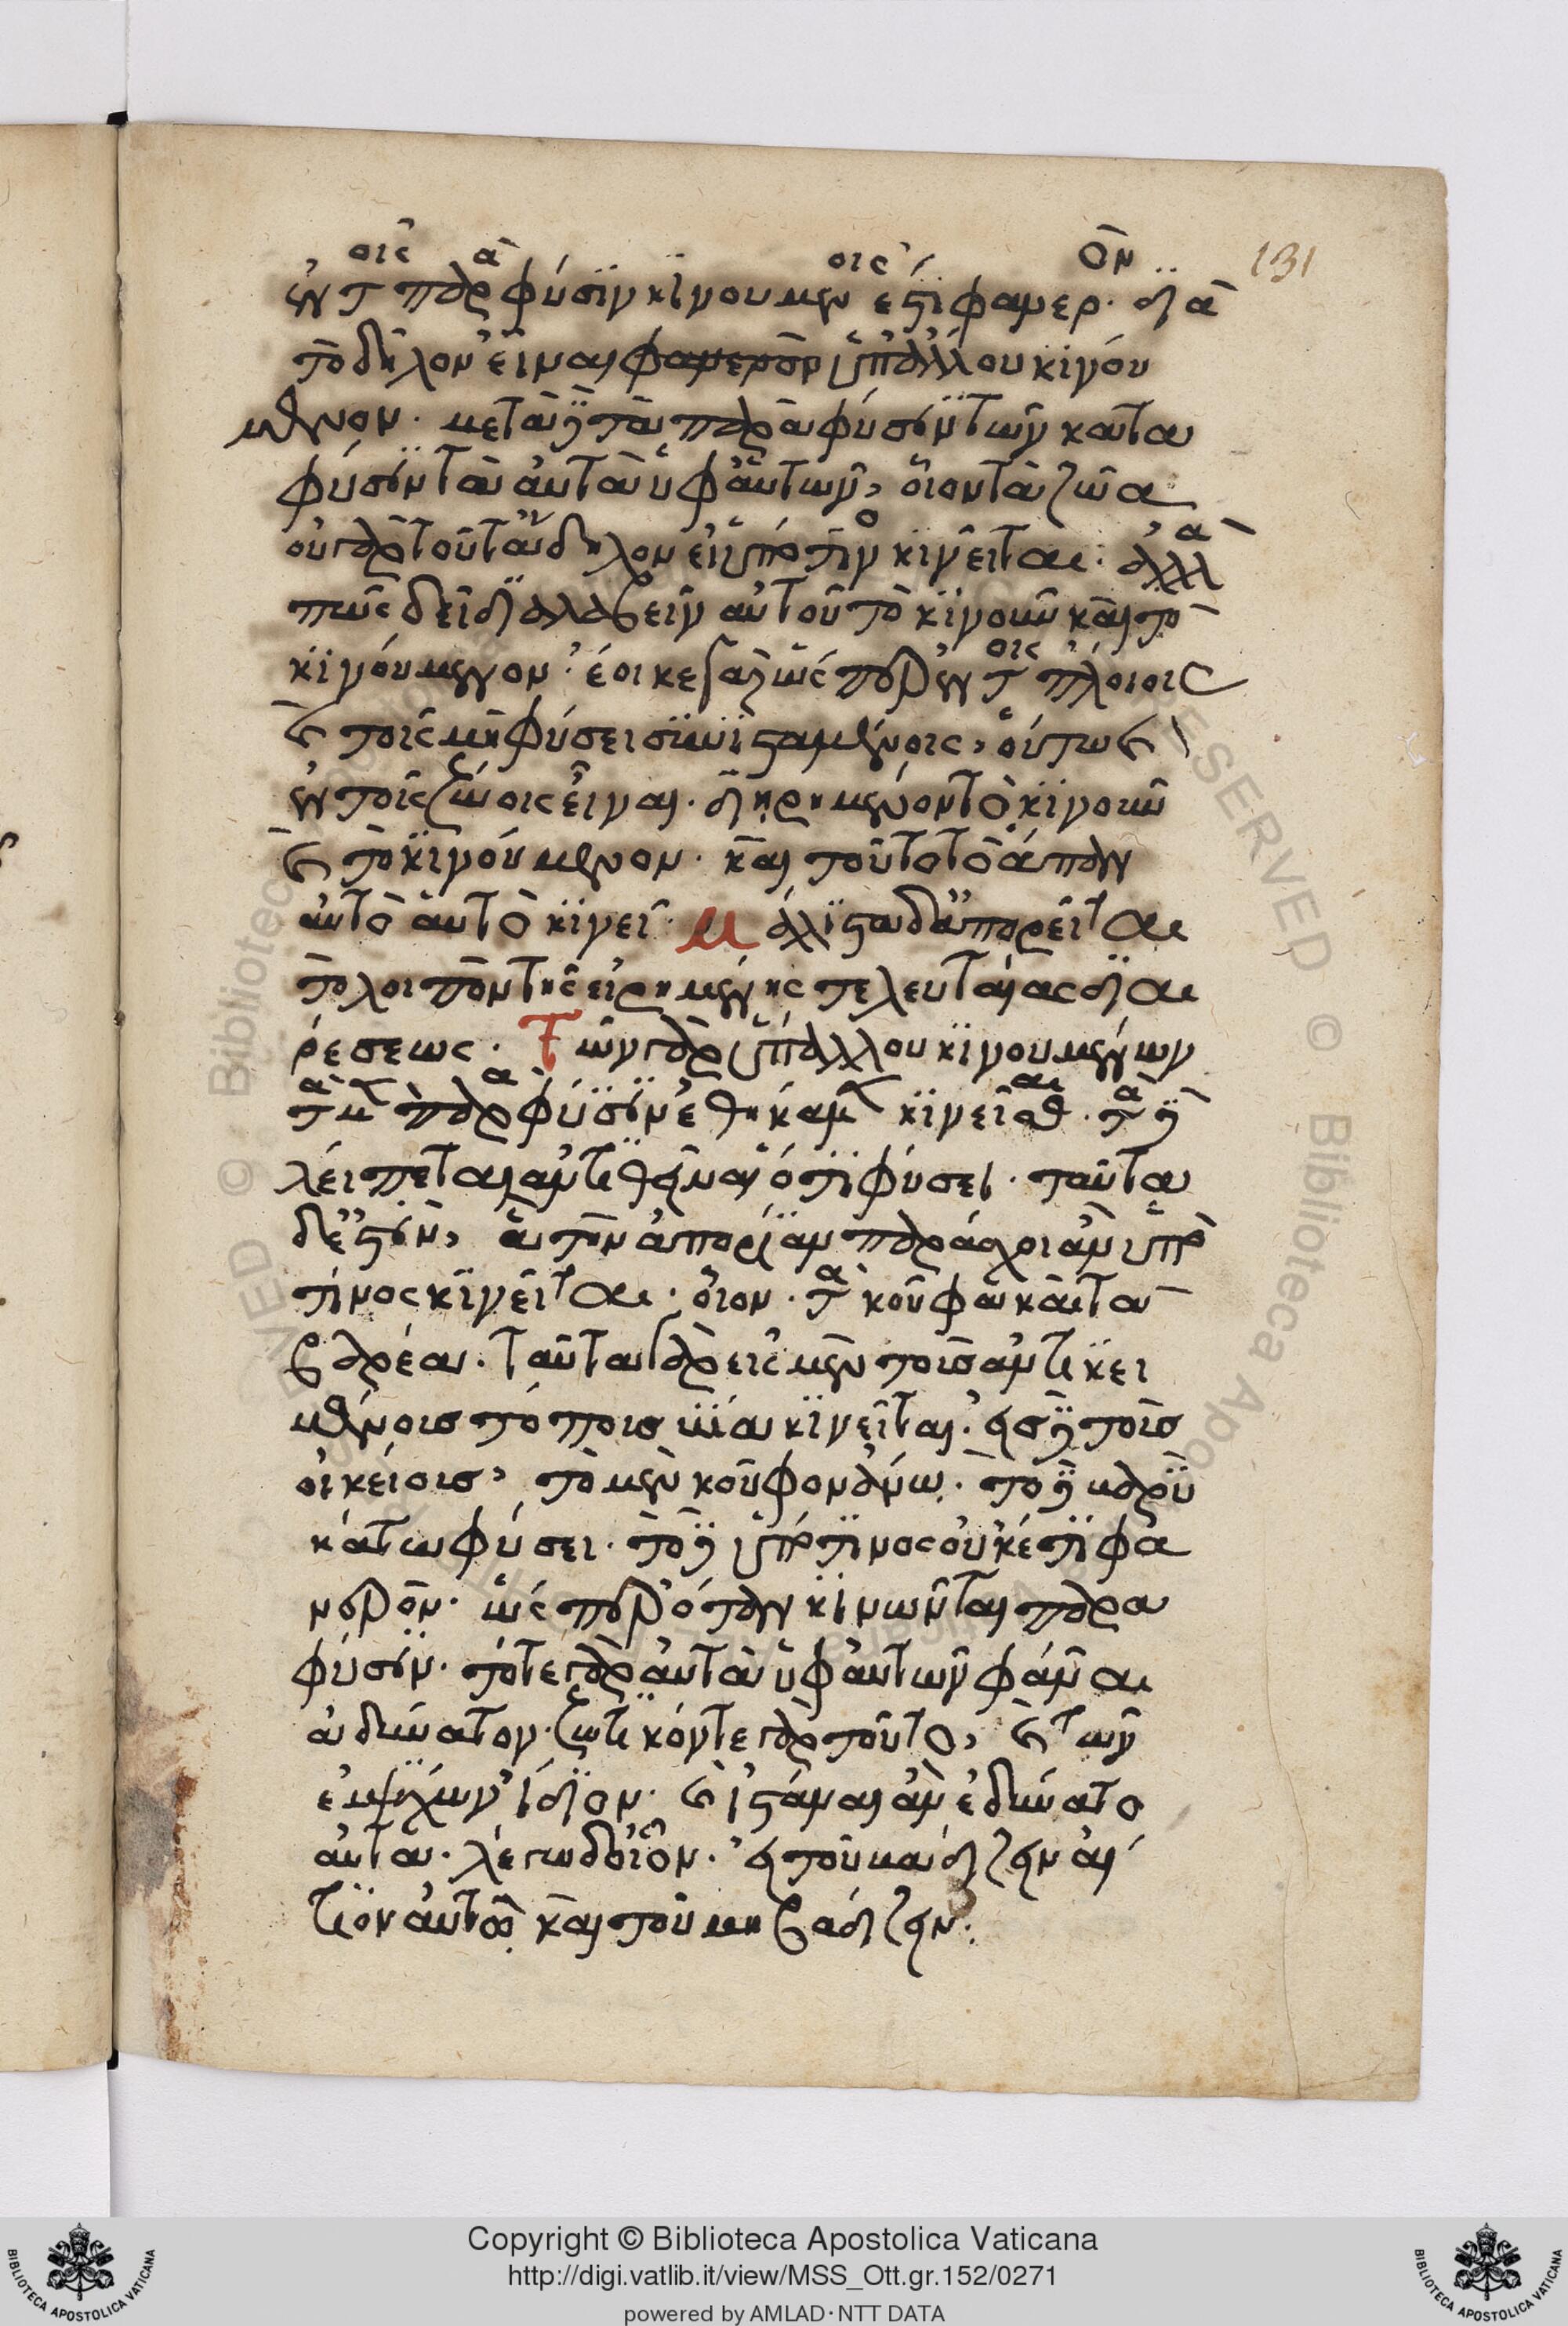 131
ἐν τοῖς παρὰ φύσιν κινουμένοις ἐστὶ φανερὸν· διὰ
τὸ δῆλον εἶναι φανερὸν ὑπ' ἄλλου κινού
μενον· μετὰ δὲ τὰ παρὰ φύσιν τῶν κατὰ
φύσιν τὰ αὐτὰ ὑφ' αὑτῶν, οἷον τὰ ζῶα
οὐ γὰρ τοῦτ' ἄδηλον εἰ ὑπό τινο κινεῖται· ἀλλὰ
πῶς δεῖ διαλαβεῖν αὐτοῦ τὸ κινοῦν καὶ τὸ
κινούμενον· ἔοικε γὰρ ὥσπερ ἐν τοῖς πλοίοις
καὶ τοῖς μὴ φύσει συνισταμένοις, οὕτω καὶ
ἐν τοῖς ζώοις εἶναι· διηρημένον τὸ κινοῦν
καὶ τὸ κινούμενον· καὶ τοῦτο τὸ ἅπαν
αὐτὸ αὑτὸ κινεῖ· Μάλιστα δ' ἀπορεῖται
τὸ λοιπὸν τῆς εἰρημένης τελευταίας διαι
ρέσεως· Τῶν γὰρ ὑπ' ἄλλου κινουμένων
τὰ μὲν παρὰ φύσιν ἐθήκαμεν κινεῖσθαι· τὰ δὲ
λείπεται ἀντιθεῖναι ὅτι φύσει· ταῦτα
δέ ἐστιν, ἃ τὴν ἀπορίαν παράσχοι ἂν ὑπὸ
τίνος κινεῖται· οἷον· τὰ κοῦφα καὶ τὰ
βαρέα· ταῦτα γὰρ εἰς μὲν τοὺς ἀντικει
μένους τόπους βία κινεῖται· εἰς δὲ τοὺς
οἰκείους, τὸ μὲν κοῦφον ἄνω· τὸ δὲ βαρὺ
κάτω φύσει· τὸ δὲ ὑπὸ τίνος οὐκέτι φα
νερὸν· ὥσπερ ὅταν κινῶνται παρὰ
φύσιν· τό τε γὰρ αὐτὰ ὑφ' αὑτῶν φάναι
ἀδύνατον· ζωτικόν τε γὰρ τοῦτο, καὶ τῶν
ἐμψύχων ἴδιον· καὶ ἱστάναι ἂν ἐδύνατο
αὐτὰ· λέγω δ' οἷον· εἰ τοῦ βαδίζειν αἴ
τιον αὐτῶ καὶ τοῦ μὴ βαδίζειν·
Copyright © Biblioteca Apostolica Vaticana
http://digi.vatlib.it/view/MSS_Ott.gr.152/0271
powered by AMLAD·NTT DATA
BIBLIOTECA APOSTOLICA VATICANA
BIBLIOTECA APOSTOLICA VATICANA